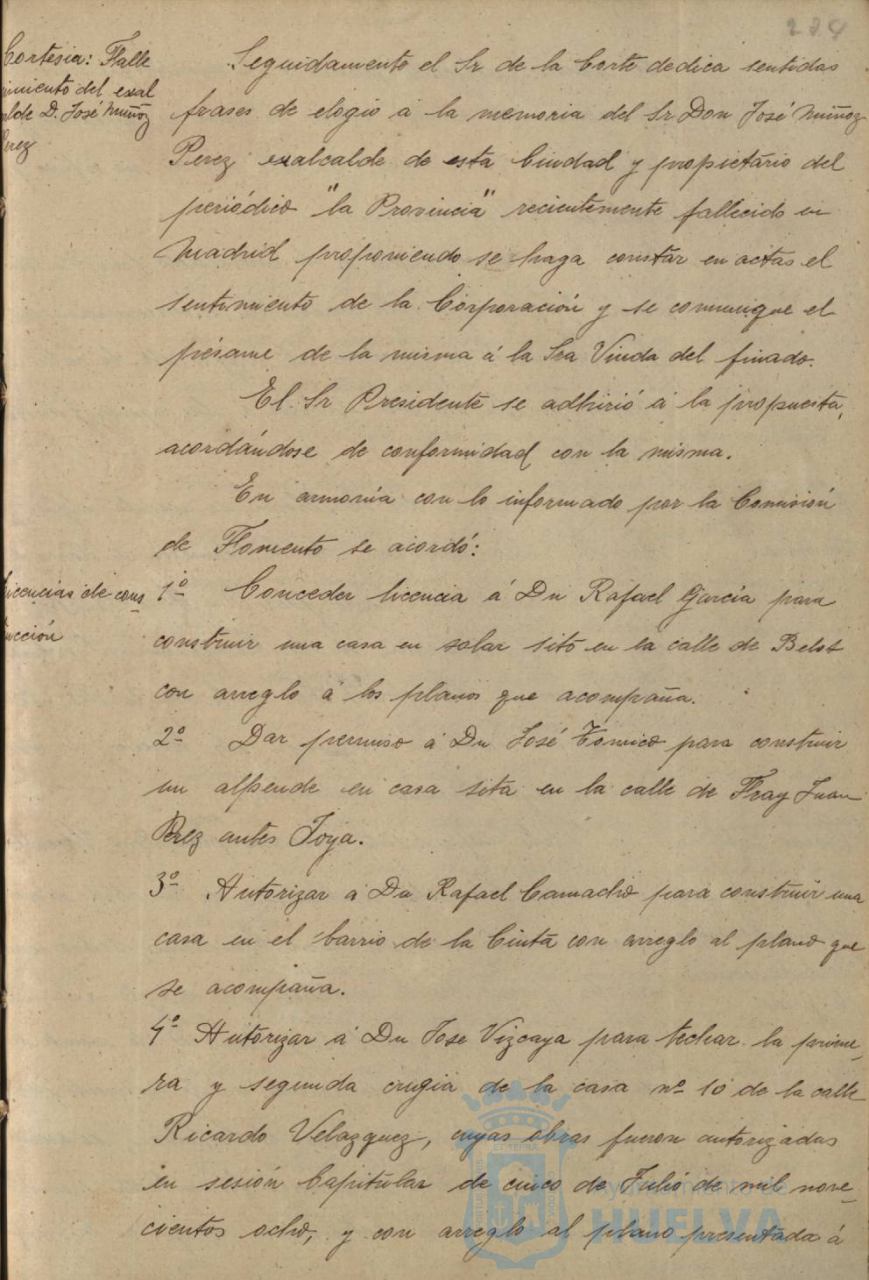 Cortesia: Falle
cimiento del exal
alde D. José Muñoz
Perez
Seguidamente el Sr de la Corte dedica sentidas
frases de elogio á la memoria del Sr Don José Muñoz
Perez exalcalde de esta Ciudad y propietario del
periódico "la Provincia" recientemente fallecido en
Madrid proponiendo se haga constar en actas el
sentimiento de la Corporación y se comunique el
pésame de la misma á la Sra Viuda del finado.
El Sr Presidente se adhirió á la propuesta,
acordándose de conformidad con la misma.
En armonía con lo informado por la Comisión
de Fomento se acordó:
Licencias de cons
trucción
1º Conceder licencia á Dn Rafael García para
construir una casa en solar sito en la calle de
con arreglo á los planos que acompaña.
2º Dar permiso á Dn José para construir
un alpende en casa sita en la calle de Fray Juan
Perez antes Joya.
3º Autorizar a Dn Rafael Camacho para construir una
casa en el barrio de la Cinta con arreglo al plano que
se acompaña.
4º Autorizar á Dn Jose Vizcaya para techar la prime-
ra y segunda crugia de la casa nº 10 de la calle
Ricardo Velazquez, cuyas obras fueron autorizadas
en sesión Capitular de cinco de Julio de mil nove-
cientos ocho, y con arreglo al plano presentada á
Ayuntamiento de
HUELVA